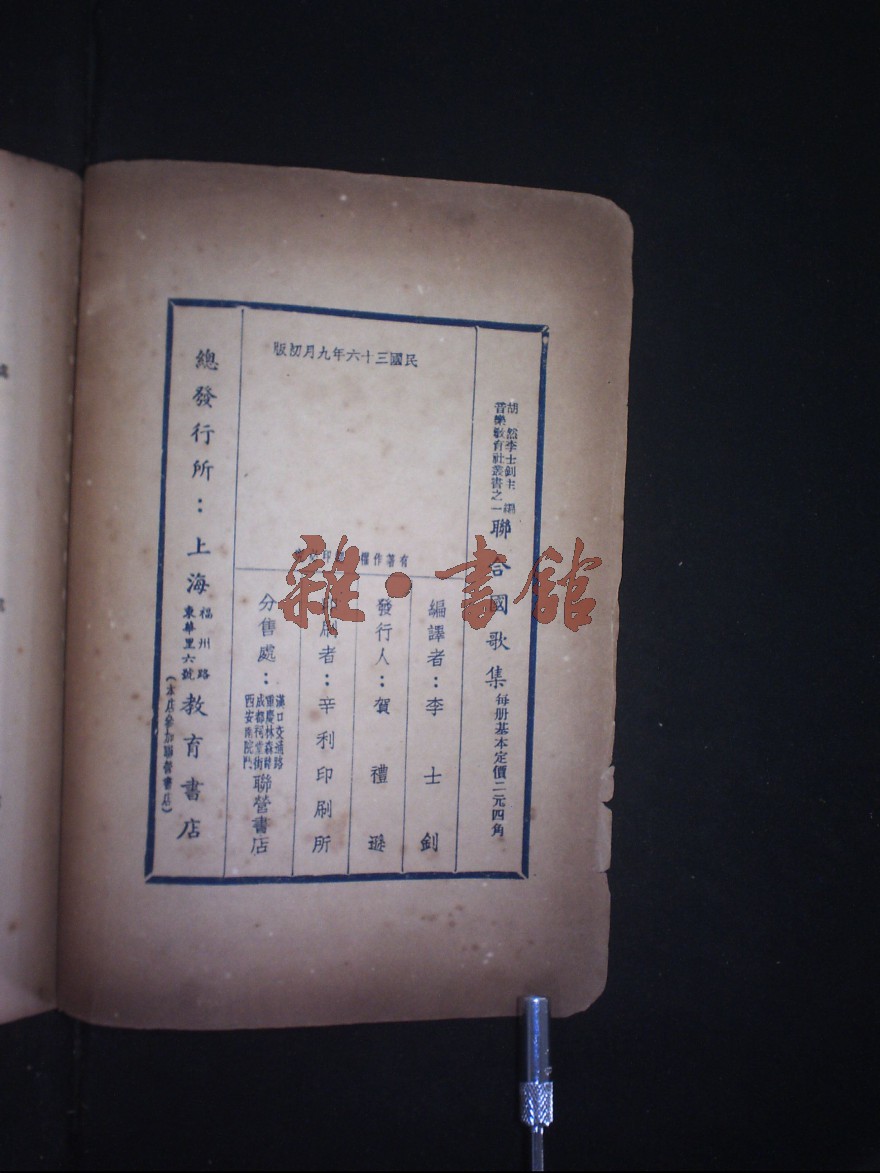 胡然李士釗主編
音樂教育社叢書之一
聯合國歌集
每册基本定價二元四角
民國三十六年九月初版
有著作權
編譯者：李士釗
發行人：賀禮遜
印刷者：辛利印刷所
分售處：
漢口交通路
重慶林森路
成都祠堂街
西安南院門
聯營書店
總發行所：上海
福州路
東華里六號
教育書店
（本店參加聯營書店）
雜·書館